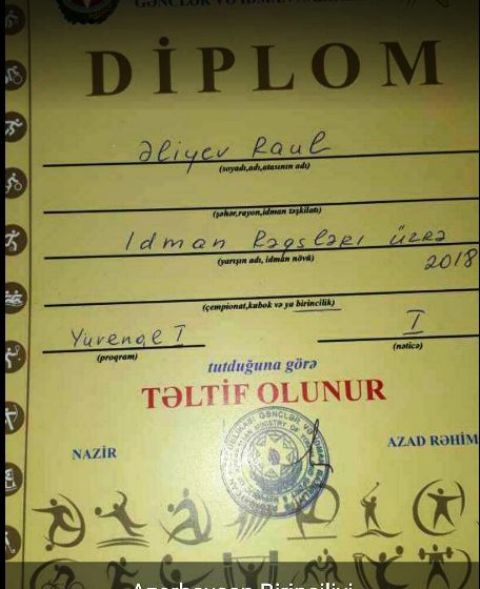 GƏNCLƏR VƏ İDMAN
DİPLOM
Əliyev Raul
(soyadı,adı,atasının adı)
(şəhər,rayon,idman təşkilatı)
Idman Rəqsləri üzrə
(yarışın adı, idman növü)
2018
(çempionat,kubok və ya birincilik)
Yuvenqe I
I
(proqram)
(nəticə)
tutduğuna görə
TƏLTİF OLUNUR
NAZİR
AZAD RƏHİM
Azərbaycan Birinciliyi